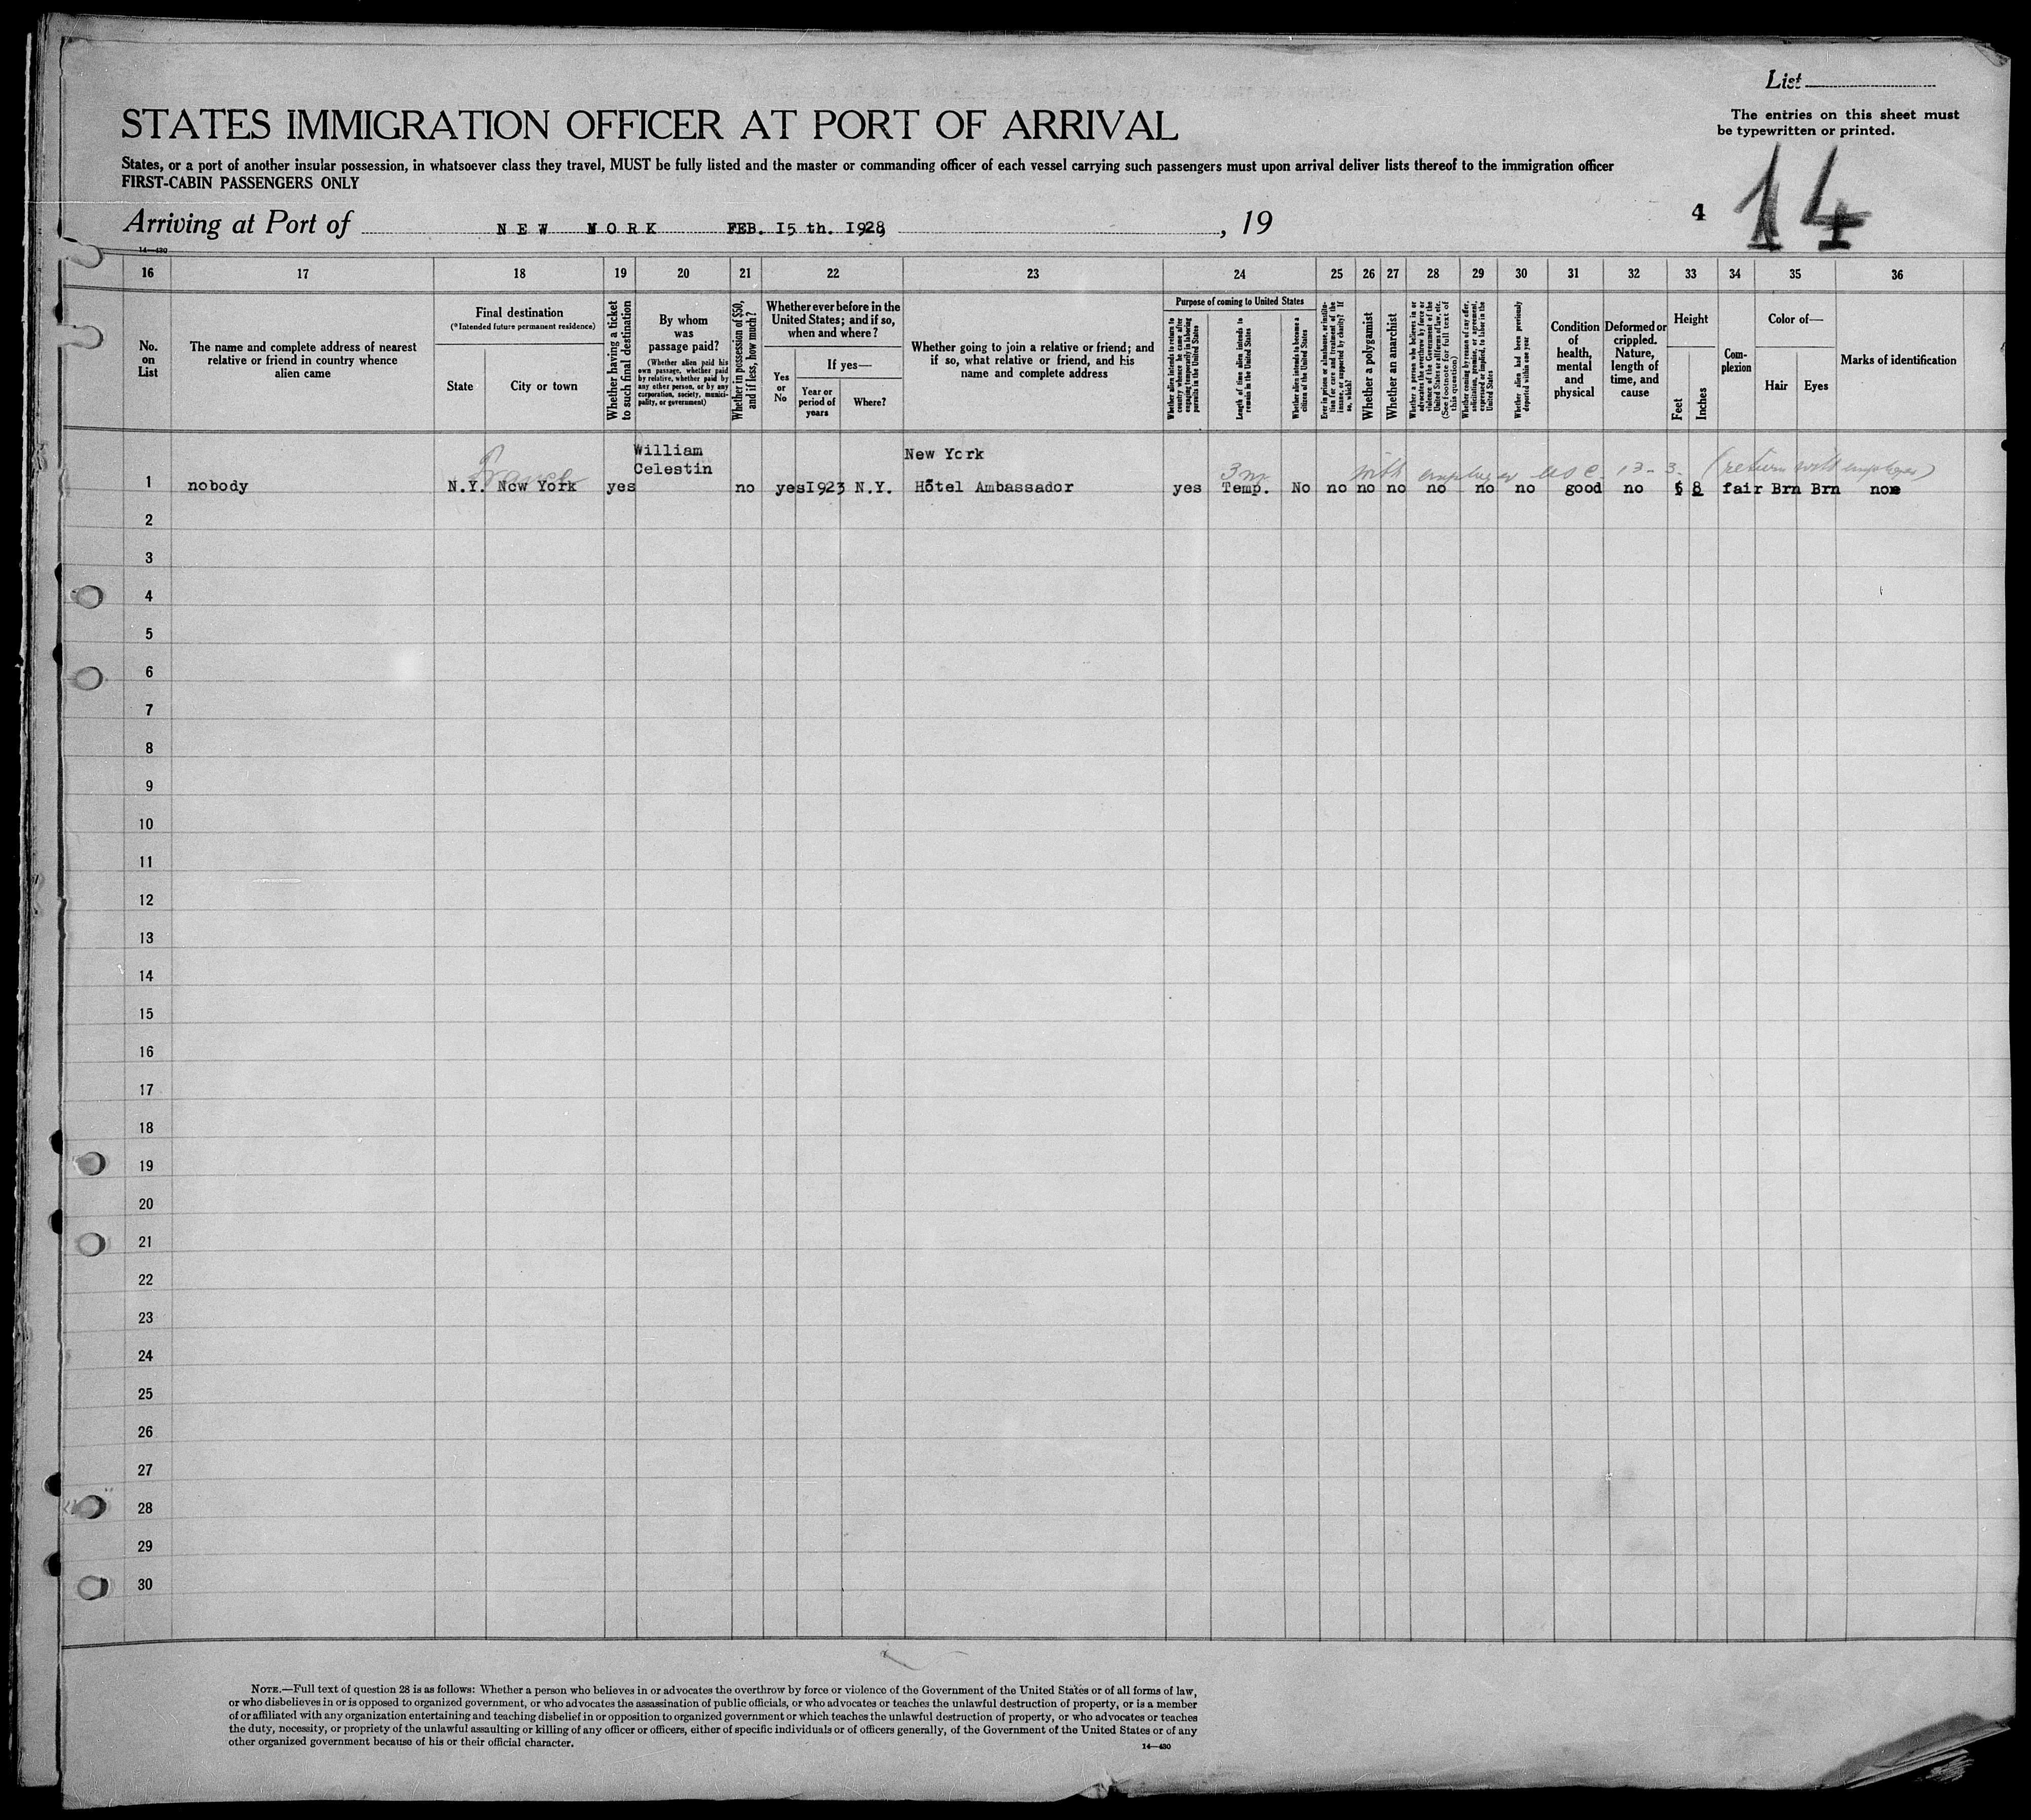 List
The entries on this sheet must
be typewritten or printed.
STATES IMMIGRATION OFFICER AT PORT OF ARRIVAL
States, or a port of another insular possession, in whatsoever class they travel, MUST be fully listed and the master or commanding officer of each vessel carrying such passengers must upon arrival deliver lists thereof to the immigration officer
FIRST-CABIN PASSENGERS ONLY
Arriving at Port of NEW YORK FEB. I5 th. I928, , 19
4 14
14—430
16 17 18 19 20 21 22 23 24 25 26 27 28 29 30 31 32 33 34 35 36
No. on List
The name and complete address of nearest relative or friend in country whence alien came
Final destination
(*Intended future permanent residence)
State
City or town
Whether having a ticket to such final destination
By whom was passage paid?
(Whether alien paid his own passage, whether paid by relative, whether paid by any other person, or by any corporation, society, municipality, or government)
Whether in possession of $50, and if less, how much?
Whether ever before in the United States; and if so, when and where?
Yes or No
If yes—
Year or period of years
Where?
Whether going to join a relative or friend; and if so, what relative or friend, and his name and complete address
Purpose of coming to United States
Whether alien intends to return to country whence he came after engaging temporarily in laboring pursuits in the United States
Length of time alien intends to remain in the United States
Whether alien intends to become a citizen of the United States
Ever in prison or almshouse, or institution for care and treatment of the insane, or supported by charity? If so, which?
Whether a polygamist
Whether an anarchist
Whether a person who believes in or advocates the overthrow by force or violence of the Government of the United States or all forms of law, etc. (See footnote for full text of this question)
Whether coming by reason of any offer, solicitation, promise, or agreement, expressed or implied, to labor in the United States
Whether alien had been previously deported within one year
Condition of health, mental and physical
Deformed or crippled. Nature, length of time, and cause
Height
Feet
Inches
Complexion
Color of—
Hair
Eyes
Marks of identification
William
Celestin
New York
France 3 m with employer 13-3- (return with employer)
1 nobody N.Y. New York yes no yes I923 N.Y. Hôtel Ambassador yes Temp. No no no no no no no good no 5 8 fair Brn Brn non
2
3
4
5
6
7
8
9
10
11
12
13
14
15
16
17
18
19
20
21
22
23
24
25
26
27
28
29
30
NOTE.—Full text of question 28 is as follows: Whether a person who believes in or advocates the overthrow by force or violence of the Government of the United States or of all forms of law,
or who disbelieves in or is opposed to organized government, or who advocates the assassination of public officials, or who advocates or teaches the unlawful destruction of property, or is a member
of or affiliated with any organization entertaining and teaching disbelief in or opposition to organized government or which teaches the unlawful destruction of property, or who advocates or teaches
the duty, necessity, or propriety of the unlawful assaulting or killing of any officer or officers, either of specific individuals or of officers generally, of the Government of the United States or of any
other organized government because of his or their official character.
14—430